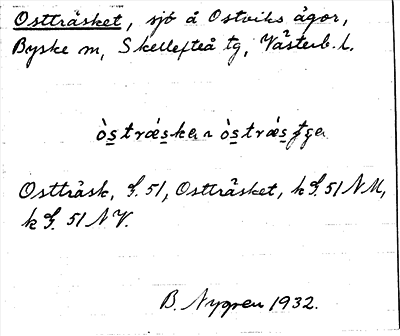 Ostträsket, sjö å Ostviks ägor,
Byske sn, Skellefteå tg, Västerb. l.
òstrǽska ~ òstrǽs
Ostträsk, G. 51, Ostträsket, k G. 51 NM,
k G. 51 NV.
B. Nygren 1932.